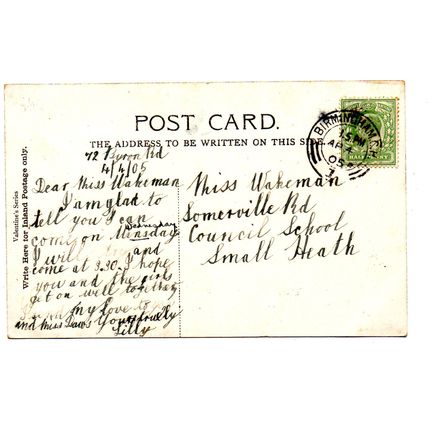 POST CARD.
THE ADDRESS TO BE WRITTEN ON THIS SIDE.
Valentine's Series
Write Here for Inland Postage only.
72 Byron Rd
4/4/05
Dear Miss Wakeman
I am glad to
tell you I can
Wednesday
come on
I will and
come at 3.30. I hope
you and the girls
get on well together
my love to
and Miss Yours truly
Lilly
Miss Wakeman
Somerville Rd
Council School
Small Heath
BIRMINGHAM
AP
05
HALFPENNY